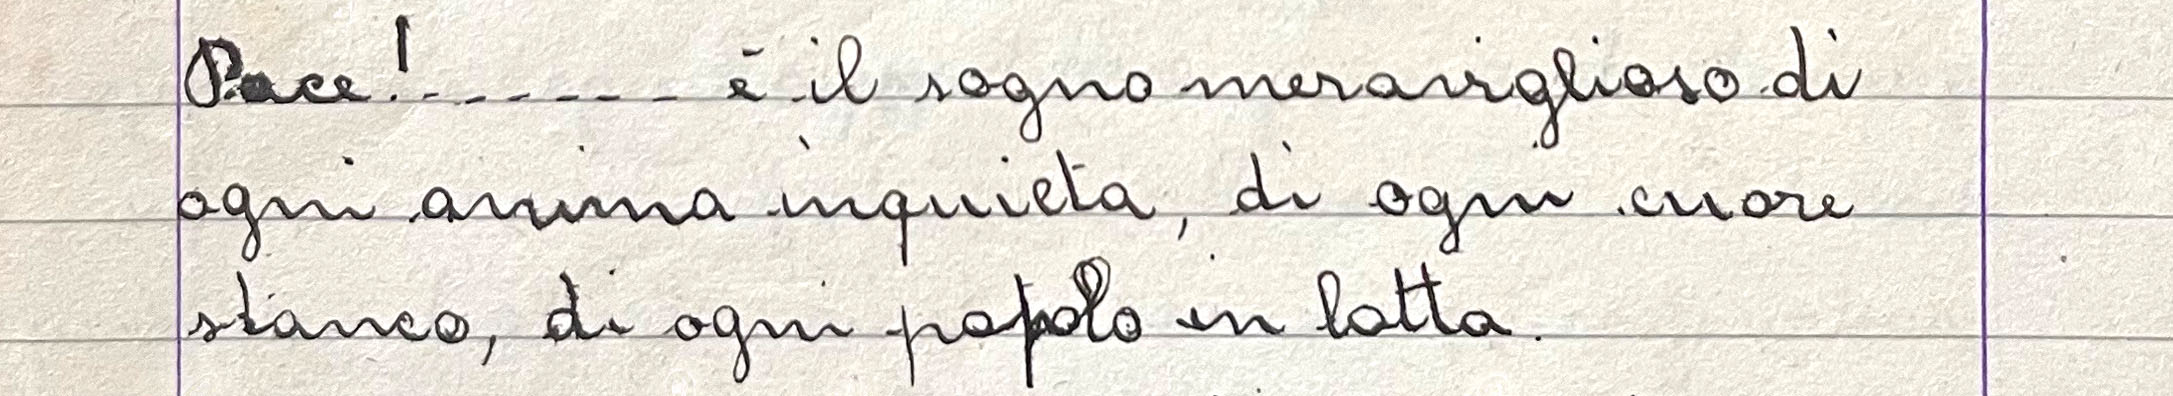 Pace!....... è il sogno meraviglioso di
ogni anima inquieta, di ogni cuore
stanco, di ogni popolo in lotta.